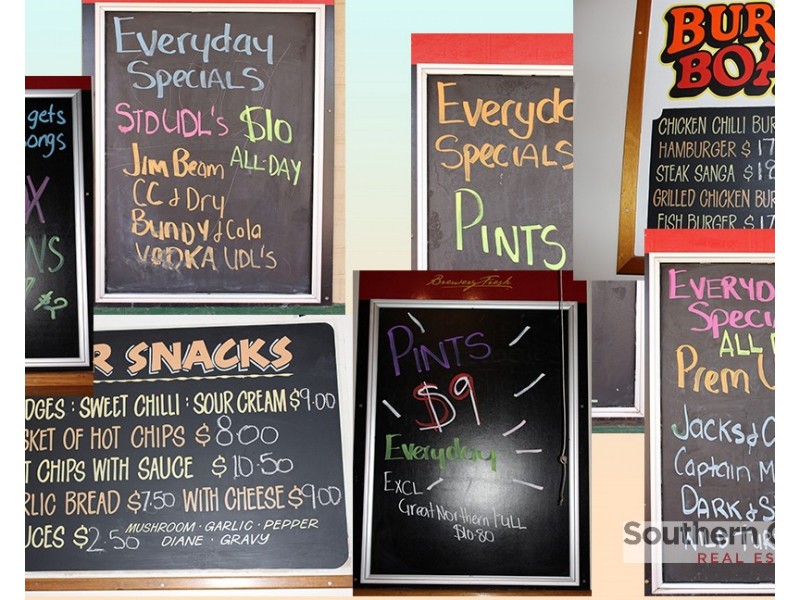 gets
ongs
X
NS
Everyday
SPECIALS
STD UDL's $10
ALL-DAY
Jim Beam
CC & Dry
Bundy & Cola
VODKA UDL's
R SNACKS
DGES : SWEET CHILLI : SOUR CREAM $9.00
SKET OF HOT CHIPS $8.00
T CHIPS WITH SAUCE $10.50
RLIC BREAD $7.50 WITH CHEESE $9.00
UCES $2.50 MUSHROOM · GARLIC · PEPPER
DIANE · GRAVY
Everyda
SPECIALS
PINTS
Brewery Fresh
PINTS
$9
Everyday
EXCL
Great Northern FULL
$10.80
BUR
BOA
CHICKEN CHILLI BUR
HAMBURGER $ 17
STEAK SANGA $18
GRILLED CHICKEN BUR
FISH BURGER $ 17
EVERYD
Speci
ALL
Prem
Jacks & C
Captain M
DARK & S
Southern
REAL ES